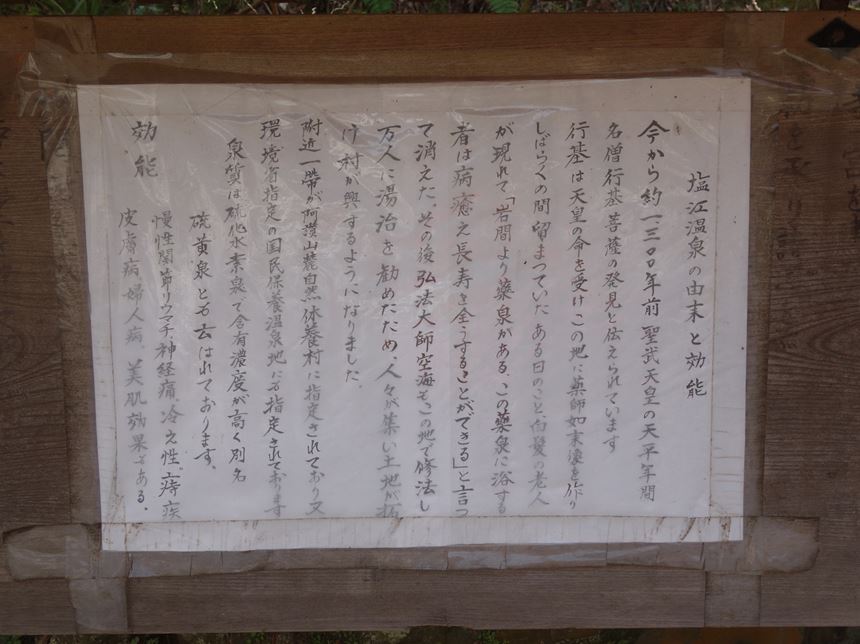 塩江温泉の由来と効能
今から約一三〇〇年前 聖武天皇の天平年間
名僧行基菩薩の発見と伝えられています
行基は天皇の命を受けこの地に薬師如来像を作り
しばらくの間留まっていた ある日のこと白髪の老人
が現れて「岩間より薬泉がある、この薬泉に浴する
者は病癒え長寿を全うすることができる」と言っ
て消えた。その後弘法大師空海もこの地で修法し
万人に湯治を勧めたため、人々が集い土地が拓
け村が興するようになりました。
附近一帯が阿讃山麓自然休養村に指定されており又
環境省指定の国民保養温泉地にも指定されております
泉質は硫化水素泉で含有濃度が高く別名
硫黄泉とも云はれております。
効能
慢性関節リウマチ神経痛、冷え性、痔疾
皮膚病婦人病、美肌効果もある、